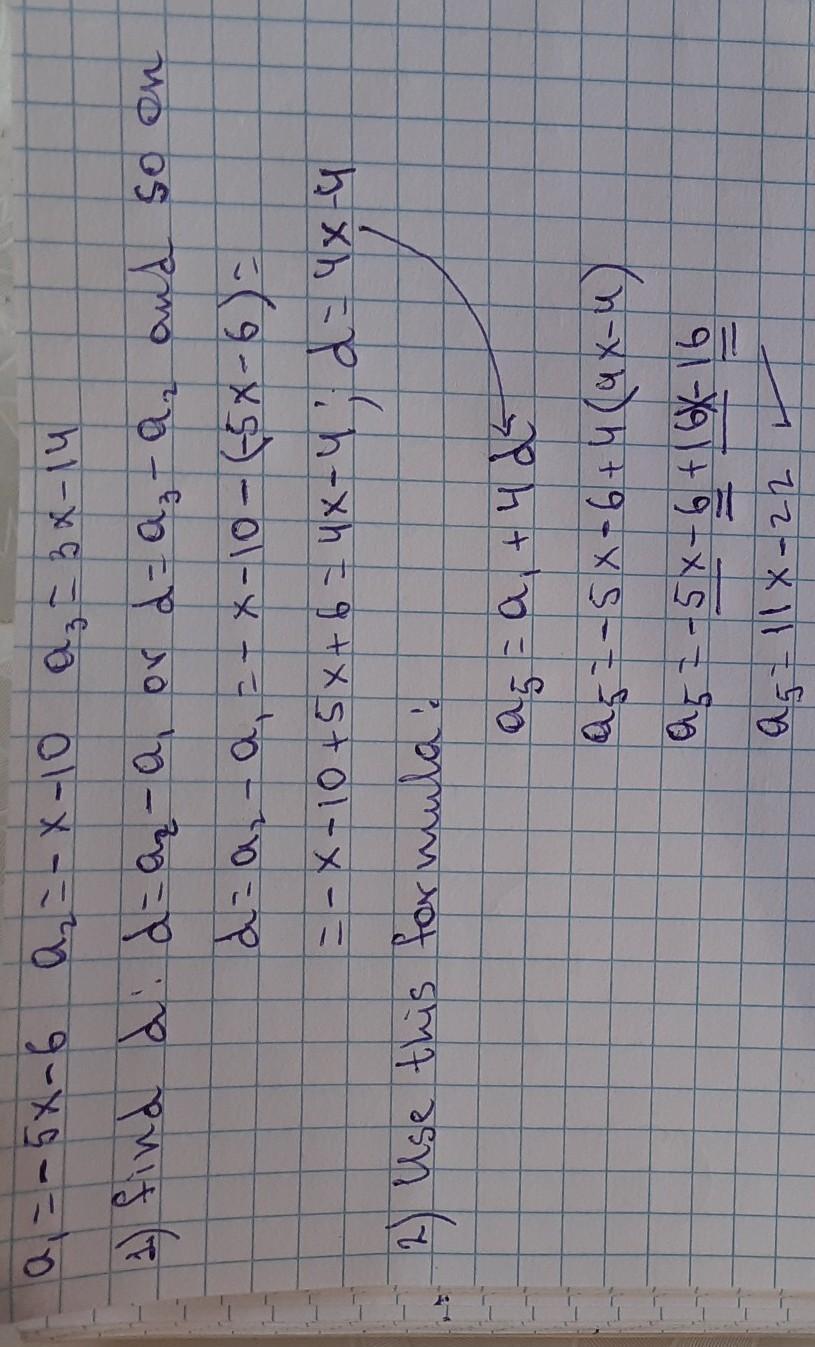 a₁ = -5x-6 a₂ = -x-10 a₃ = 3x-14
1) find d: d = a₂ - a₁ or d = a₃ - a₂ and so on
d = a₂ - a₁ = -x-10-(-5x-6) =
= -x-10+5x+6 = 4x-4; d = 4x-4
2) Use this formula:
a₅ = a₁ + 4d
a₅ = -5x-6+4(4x-4)
a₅ = -5x-6+16x-16
a₅ = 11x-22 ✓